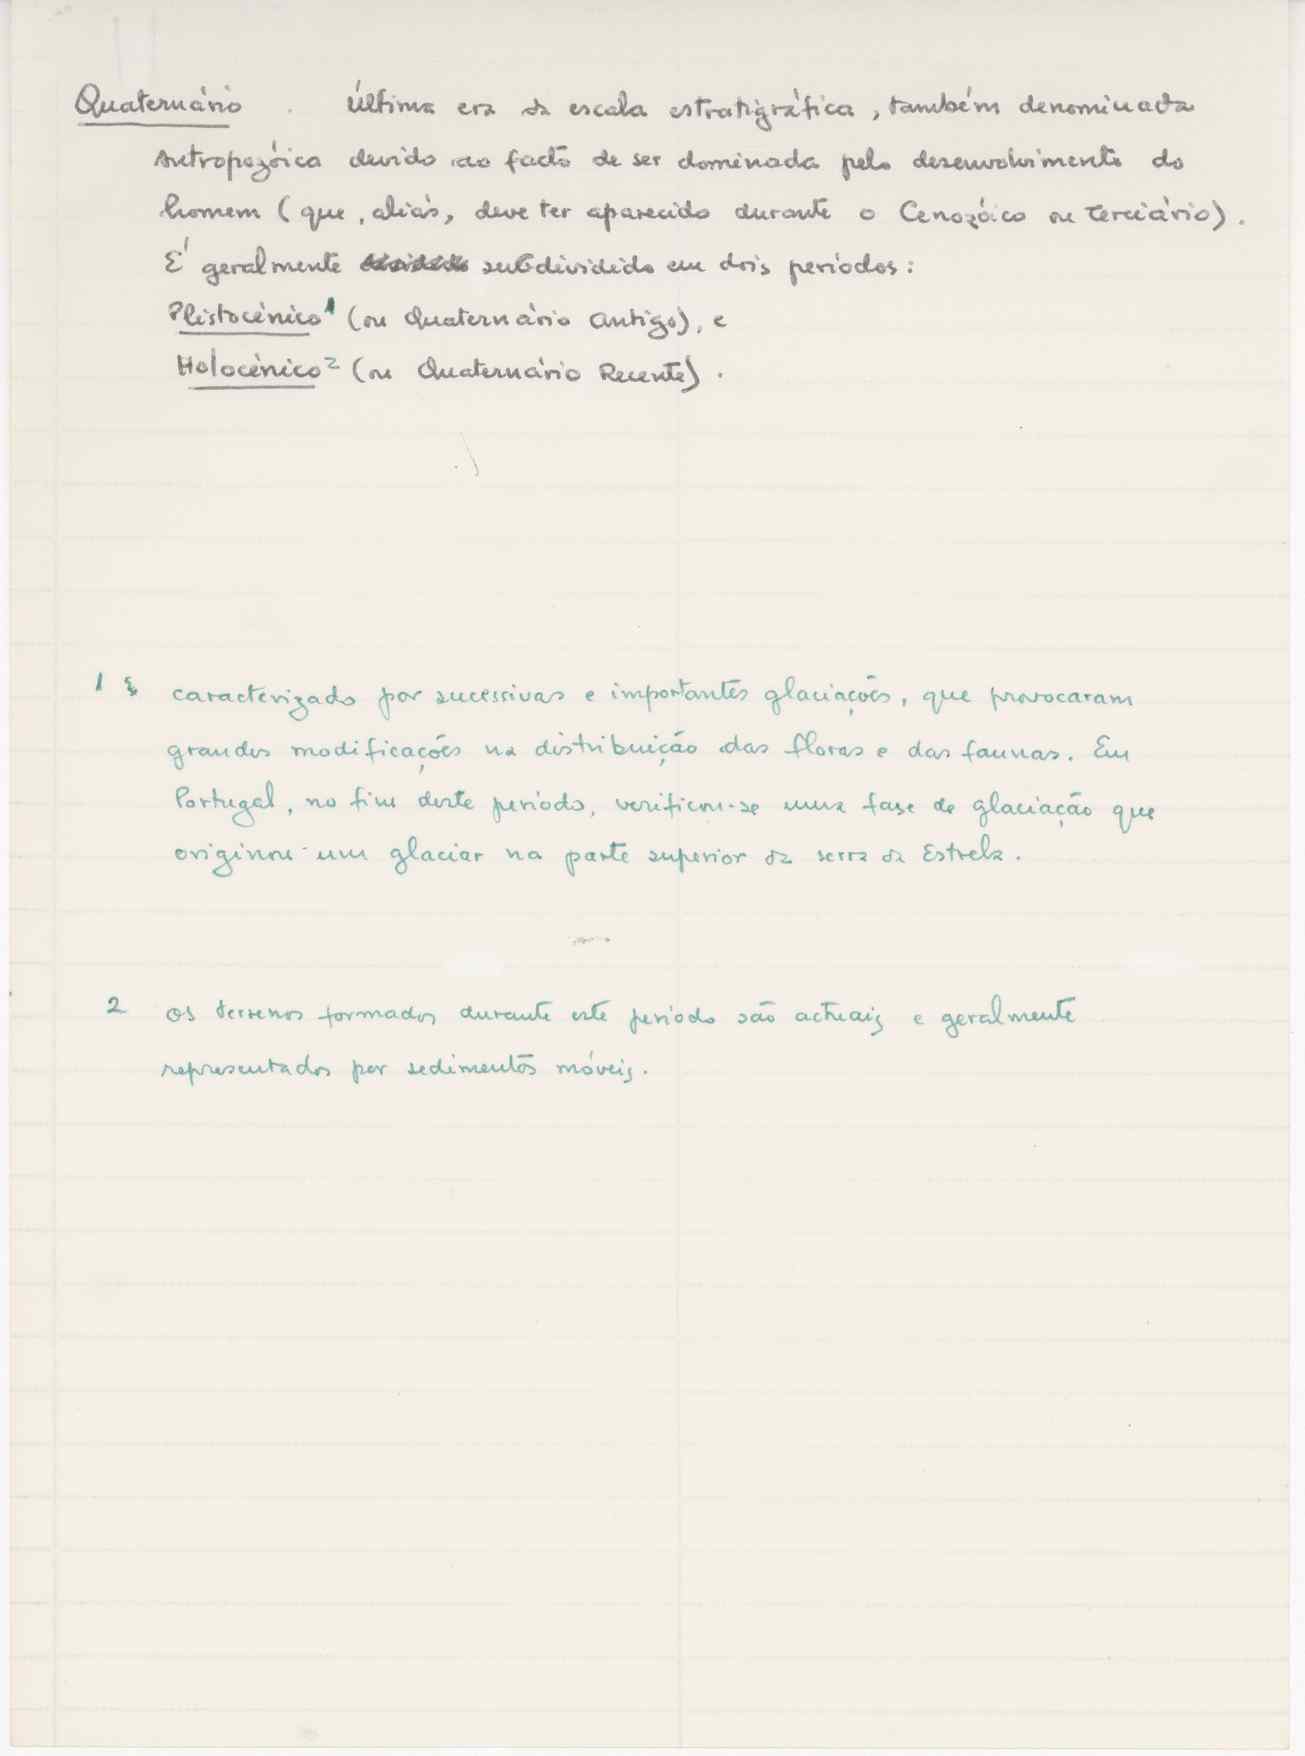 Quaternário . Última era da escala estratigráfica, também denominada
Antropozóica devido ao facto de ser dominada pelo desenvolvimento do
homem (que, aliás, deve ter aparecido durante o Cenozóico ou Terciário).
É geralmente subdividido em dois períodos:
Plistocénico¹ (ou Quaternário Antigo), e
Holocénico² (ou Quaternário Recente).
1 caracterizado por sucessivas e importantes glaciações, que provocaram
grandes modificações na distribuição das floras e das faunas. Em
Portugal, no fim deste período, verificou-se uma fase de glaciação que
originou um glaciar na parte superior da serra da Estrela.
2 os terrenos formados durante este período são actuais e geralmente
representados por sedimentos móveis.